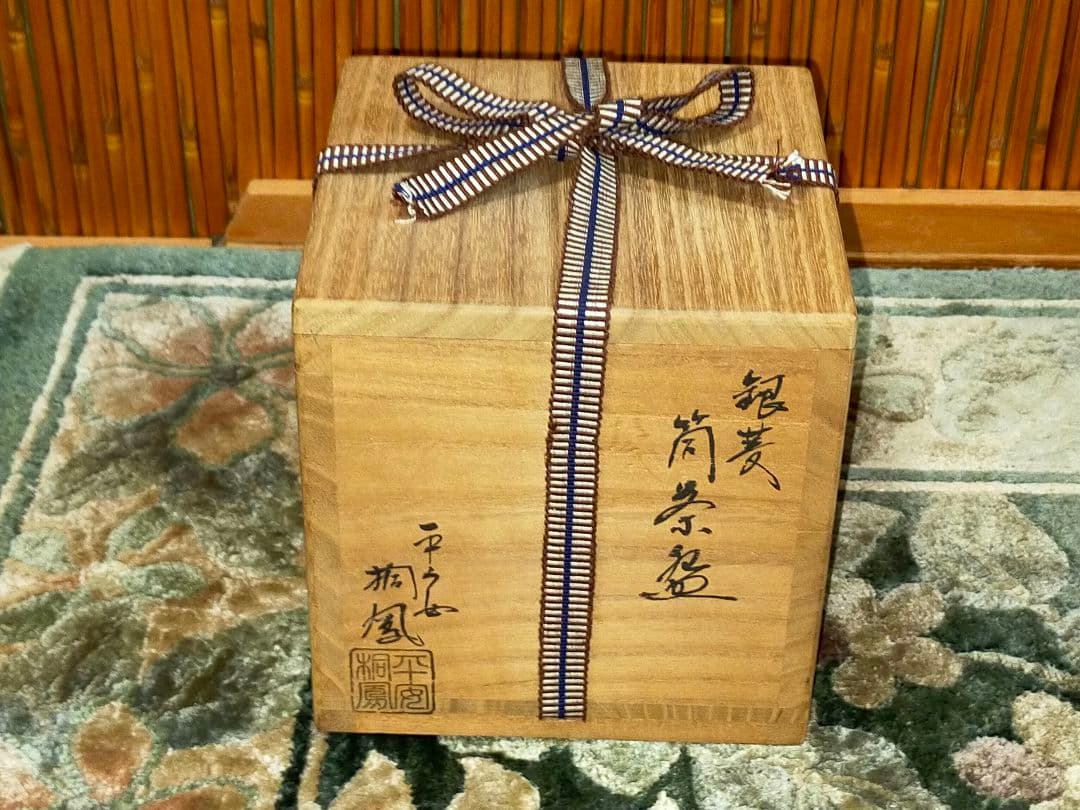 銀菱
筒茶盌
平安
桐鳳
平安
桐鳳